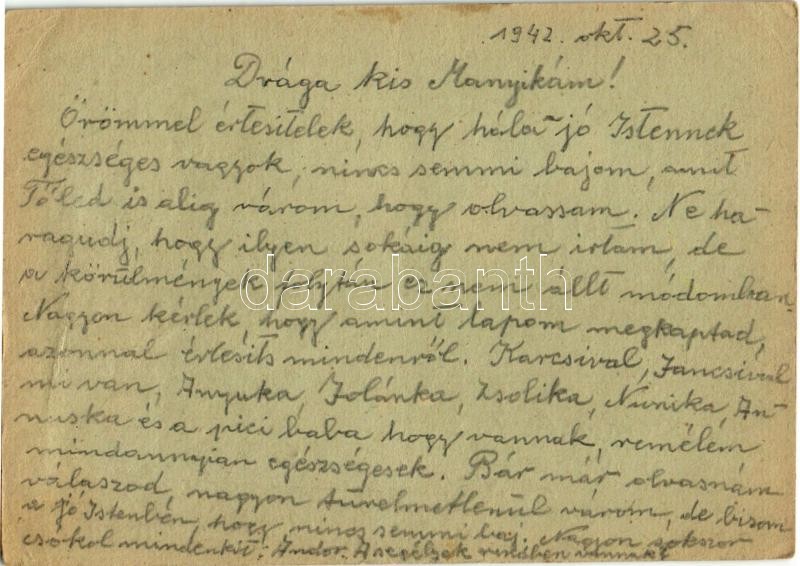 1942. okt. 25.
Drága kis Manyikám!
Örömmel értesitelek, hogy hála jó Istennek
egészséges vagyok, nincs semmi bajom, amit
Tőled is alig várom, hogy olvassam. Ne ha-
ragudj, hogy ilyen sokáig nem irtam, de
a körülmények folytán ez nem állt módomban.
darabanth
Nagyon kérlek, hogy amint lapom megkaptad,
azonnal értesits mindenről. Karcsival, Jancsival
mi van, Anyuka, Jolánka, Zsolika, Nunika, An-
nuska és a pici baba hogy vannak, remélem
mindannyian egészségesek. Bár már olvasnám
válaszod, nagyon türelmetlenül várom, de bizom
a jó Istenben, hogy nincs semmi baj. Nagyon sokszor
csokol mindenkit: Andor. A segélyek rendben vannak?